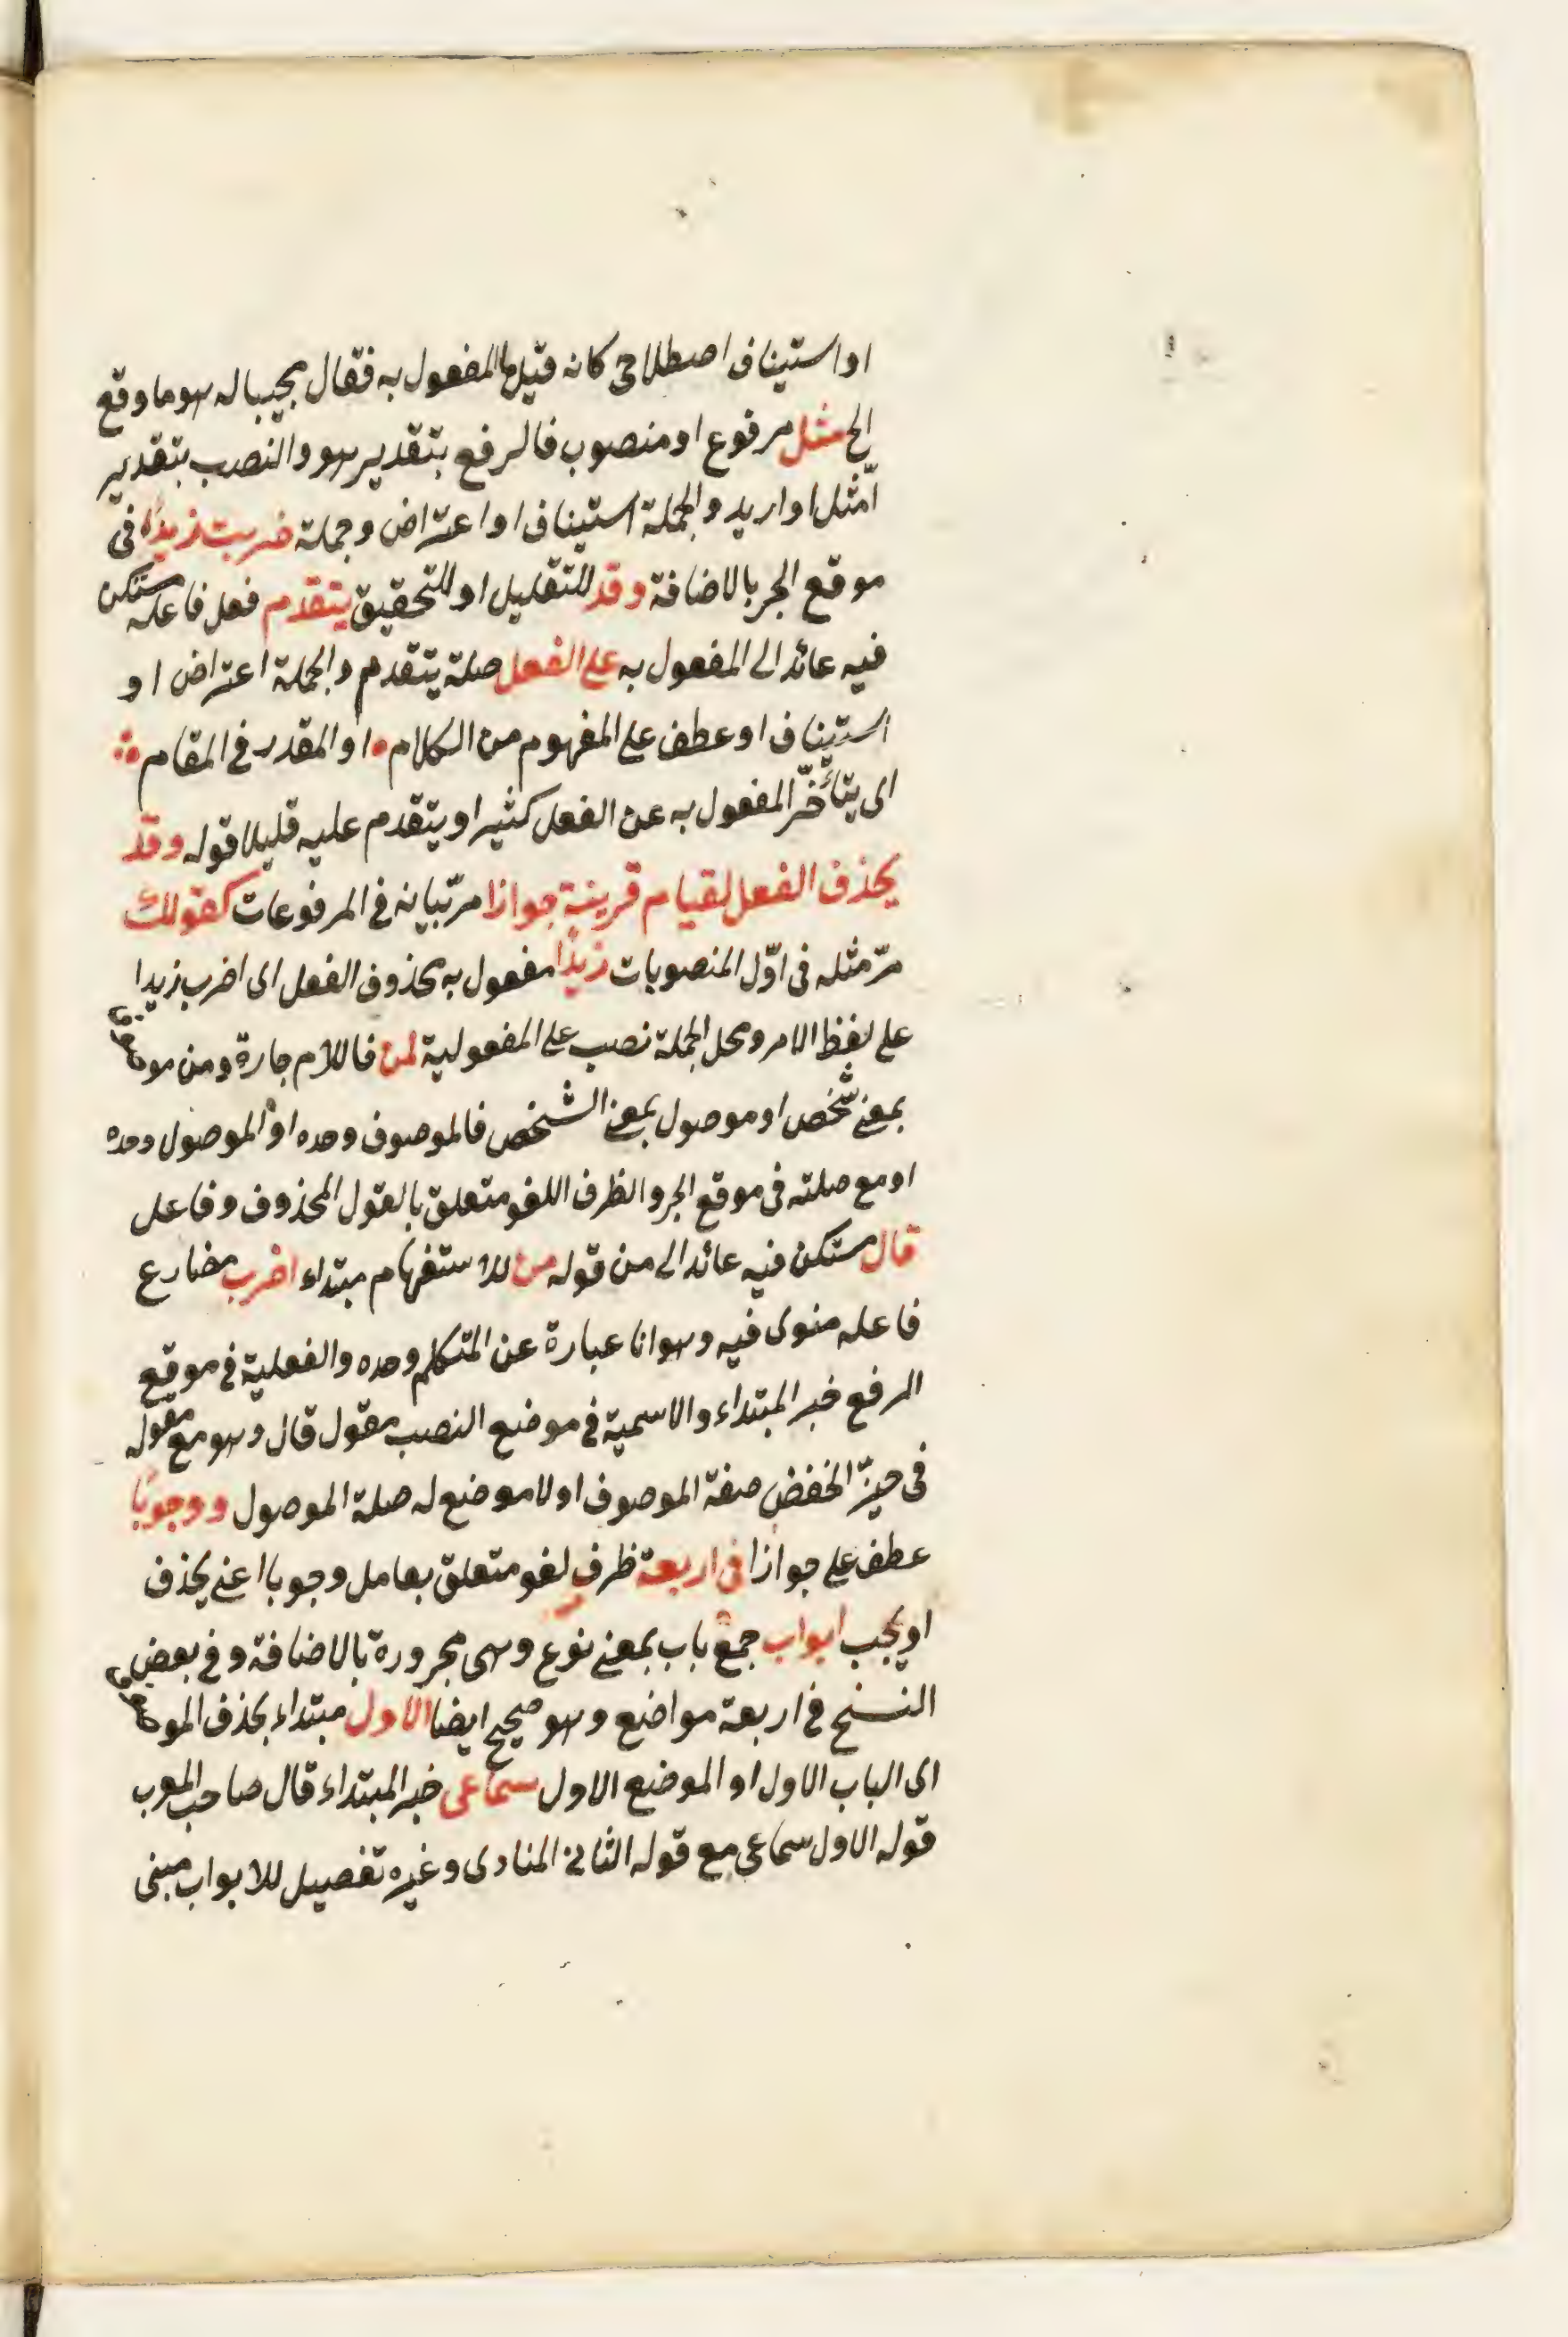 او استيناف اصطلاحى كانه قيل ما المفعول به فقال مجيبا له هو ما وقع
الخ مثل مرفوع او منصوب فالرفع بتقدير هو والنصب بتقدير
امّثل او اريد والجملة استيناف او اعتراض وجملة ضربت زيدًا فى
موقع الجر بالاضافة وقد للتقليل او للتحقيق يتقدم فعل فاعله مستكن
فيه عائد الى المفعول به على الفعل صلة يتقدم والجملة اعتراض او
استيناف او عطف على المفهوم من الكلام او المقدر فى المقام
اى يتأخّر المفعول به عن الفعل كثيرا ويتقدم عليه قليلا قوله وقد
يحذف الفعل لقيام قرينة جوازا مرّ بيانه فى المرفوعات كقولك
مرّ مثله فى اوّل المنصوبات زيدًا مفعول به محذوف الفعل اى اضرب زيدا
على لفظ الامر ومحل الجملة نصب على المفعولية لمن فاللام جارة ومن موصوف
بمعنى شخص او موصول بمعنى الشخص فالموصوف وحده او الموصول وحده
او مع صلته فى موقع الجر والظرف اللغو متعلق بالقول المحذوف وفاعل
قال مستكن فيه عائد الى من قوله من للاستفهام مبتداء اضرب مضارع
فاعله منوى فيه وهو انا عبارة عن المتكلم وحده والفعلية فى موقع
الرفع خبر المبتداء والاسمية فى موضع النصب مقول قال وهو مع مقوله
فى حيزّ الخفض صفة الموصوف او لا موضع له صلة الموصول ووجوبًا
عطف على جوازا فى اربعة ظرف لغو متعلق بعامل وجوبا اعنى يحذف
او يجب ابواب جمع باب بمعنى نوع وهى مجرورة بالاضافة وفى بعض
النسخ فى اربعة مواضع وهو صحيح ايضا الاول مبتداء بحذف الموصوف
اى الباب الاول او الموضع الاول سماعى خبر المبتداء قال صاحب المعرب
قوله الاول سماعى مع قوله الثانى المنادى وغيره تفصيل للابواب مبنى